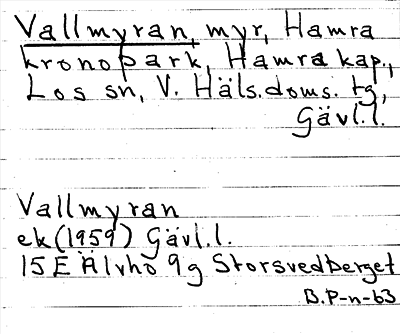 Vallmyran, myr, Hamra
kronopark, Hamra kap.,
Los sn, V. Häls.doms. tg,
Gävl.l.
Vallmyran
ek (1959) Gävl.l.
15 E Älvho 9g Storsvedberget
B.P-n-63